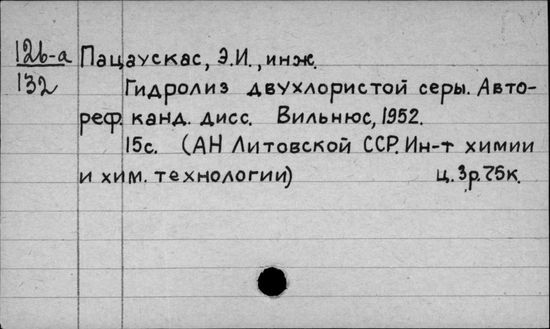 12б-а Пацаускас, Э.И., инж.
132 Гидролиз двухлористой серы. Авто-
реф. канд. дисс. Вильнюс, 1952.
15с. (АН Литовской ССР. Ин-т химии
и хим. технологии) ц. 3р.75к.